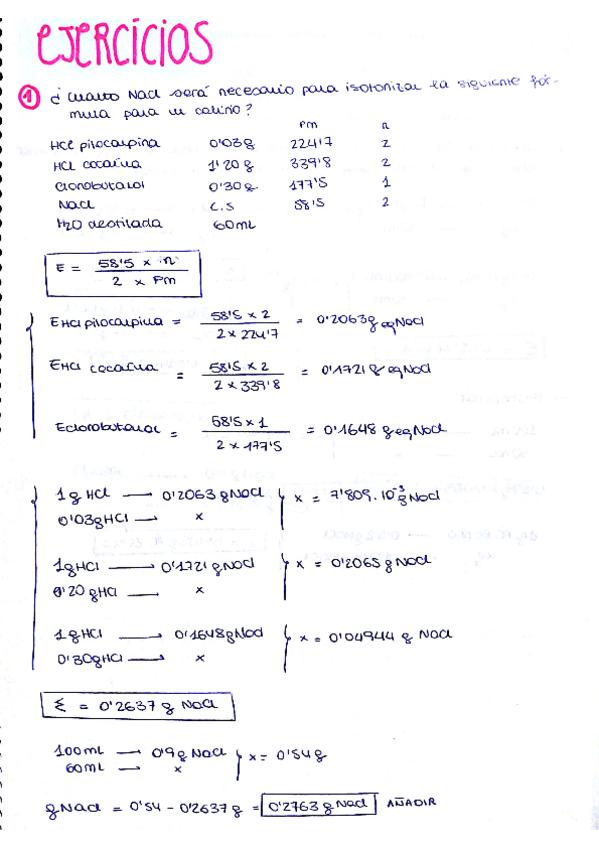 EJERCICIOS
1 ¿Cuanto NaCl será necesario para isotonizar la siguiente fór-
mula para un colirio?
Pm n
HCl pilocarpina 0'03g 224'7 2
HCl cocaína 1'20g 339'8 2
Clorobutanol 0'30g 177'5 1
NaCl C.S 58'5 2
H2O destilada 60mL
E = 58'5 x n / 2 x Pm
EHCl pilocarpina = 58'5 x 2 / 2 x 224'7 = 0'2063g eqNaCl
EHCl cocaína = 58'5 x 2 / 2 x 339'8 = 0'1721g eqNaCl
Eclorobutanol = 58'5 x 1 / 2 x 177'5 = 0'1648 g eqNaCl
1g HCl → 0'2063 g NaCl
0'03gHCl → x
x = 7'809.10⁻³ g NaCl
1gHCl → 0'1721 g NaCl
0'20 gHCl → x
x = 0'2065 g NaCl
1gHCl → 0'1648gNaCl
0'30gHCl → x
x = 0'04944 g NaCl
Σ = 0'2637 g NaCl
100mL → 0'9g NaCl
60mL → x
x = 0'54g
gNaCl = 0'54 - 0'2637 g = 0'2763 g NaCl AÑADIR